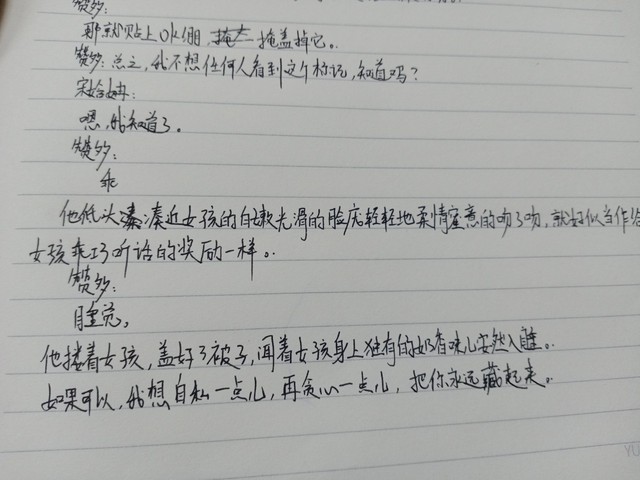 赞多:
那就贴上ok绷,掩盖掉它。
赞多:总之,我不想任何人看到这个标记,知道吗?
宋始冉:
嗯,我知道了。
赞多:
乖
他低头凑近女孩的白嫩光滑的脸庞轻轻地柔情蜜意的吻了吻,就好似当作给
女孩乖巧听话的奖励一样。
赞多:
睡觉,
他搂着女孩,盖好了被子,闻着女孩身上独有的奶香味儿安然入睡。
如果可以,我想自私一点儿,再贪心一点儿,把你永远藏起来。